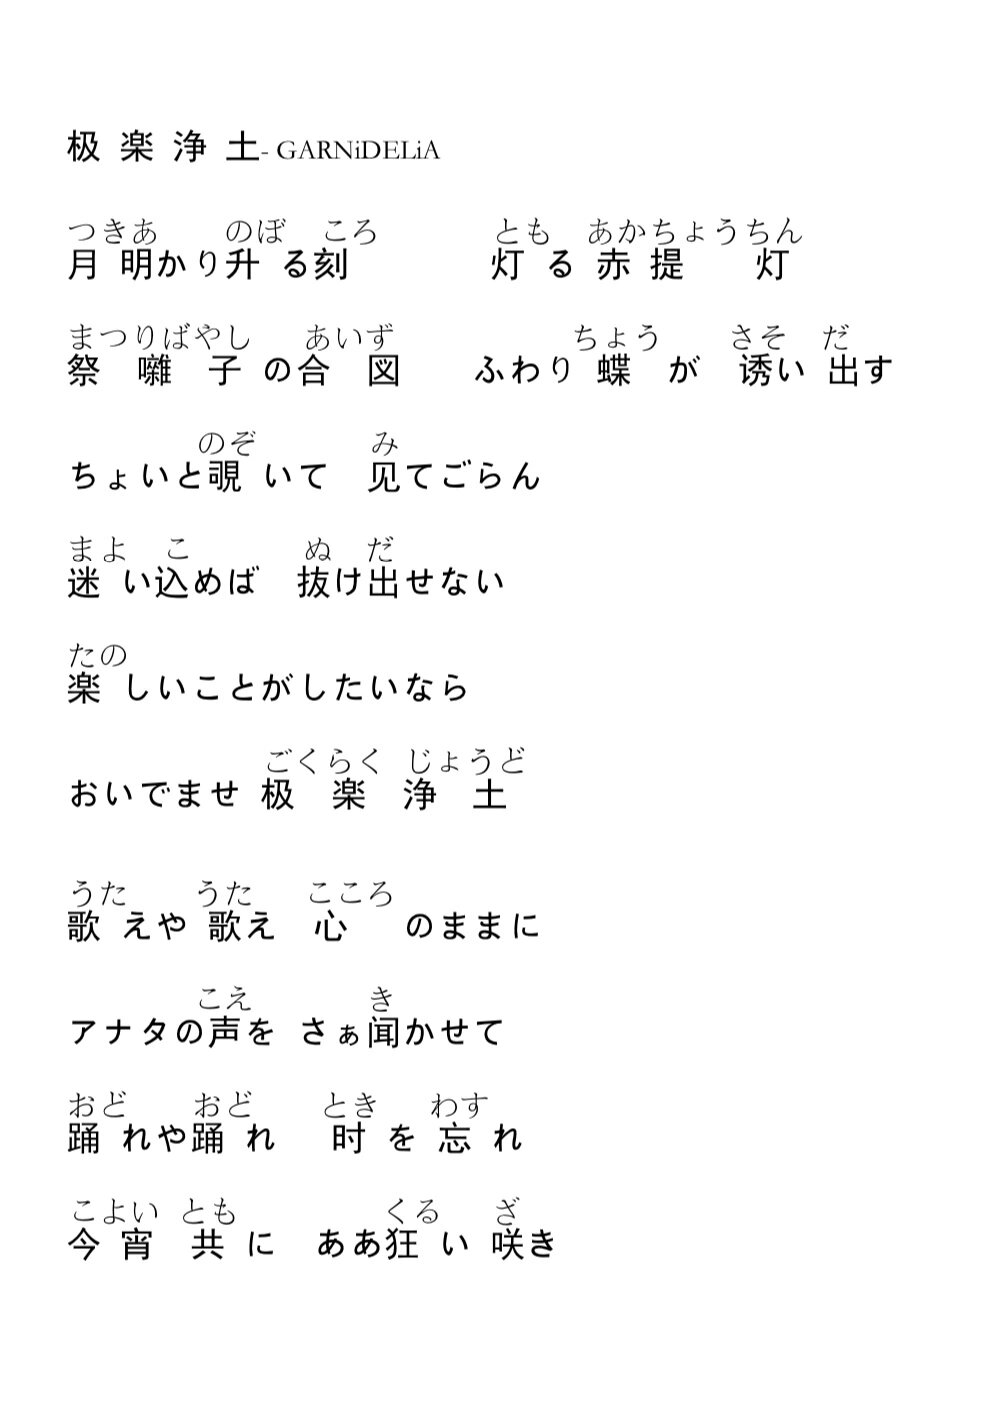 极楽浄土- GARNiDELiA
つきあ のぼ ころ とも あかちょうちん
月明かり升る刻 灯る赤提灯
まつりばやし あいず ちょう さそ だ
祭囃子の合図 ふわり蝶が 诱い出す
のぞ み
ちょいと覗いて 见てごらん
まよ こ ぬ だ
迷い込めば 抜け出せない
たの
楽しいことがしたいなら
ごくらく じょうど
おいでませ 极楽浄土
うた うた こころ
歌えや歌え 心のままに
こえ き
アナタの声を さぁ闻かせて
おど おど とき わす
踊れや踊れ 时を忘れ
こよい とも くる ざ
今宵共に ああ狂い咲き